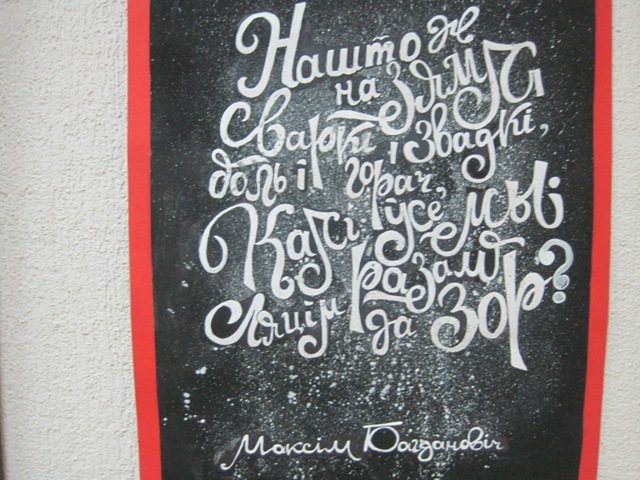 Нашто ж
на зямлі
сваркі і звадкі,
боль і горач,
Калі ўсе мы
ляцім разам
да зор?
Максім Багдановіч